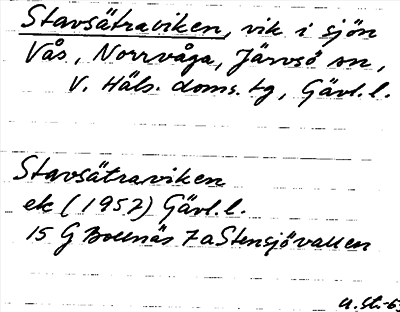 Stavsätraviken, vik i sjön
Vås, Norrvåga, Järvsö sn,
V. Häls. doms. tg, Gävl. l.
Stavsätraviken
ek (1957) Gävl. l.
15 G Bollnäs 7a Stensjövallen